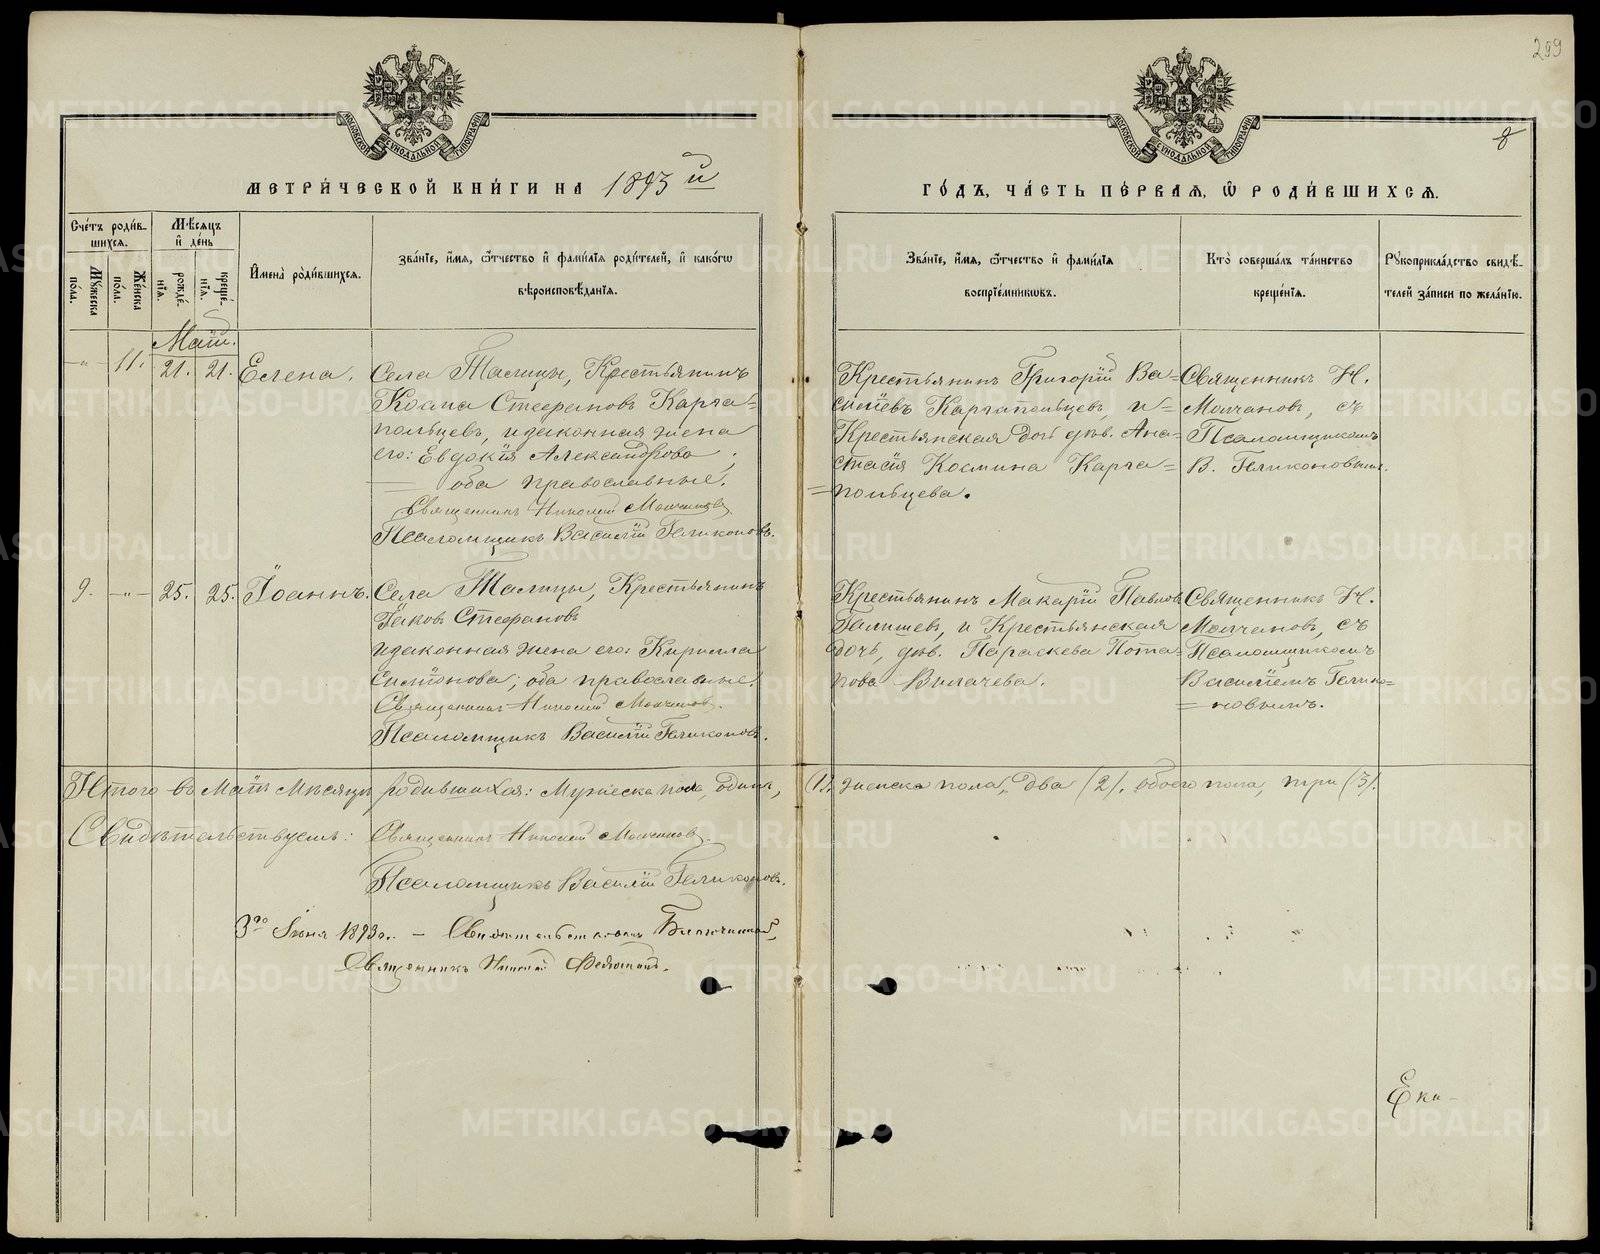 299
8
МОСКОВСКОЙ СѴНОДАЛЬНОЙ ТИПОГРАФІИ
МОСКОВСКОЙ СѴНОДАЛЬНОЙ ТИПОГРАФІИ
МЕТРИ́ЧЕСКОЙ КНИ́ГИ НА 1893 й
ГО́ДЪ, ЧА́СТЬ ПЕ́РВАЯ, Ѡ РОДИ́ВШИХСЯ.
Сче́тъ роди́в-
шихся.
Мѣ́сяцъ
и҆ де́нь
Мꙋ́жеска
пола.
Же́нска
пола.
рожде́-
нїя.
креще́-
нїя.
И҆мена̀ роди́вшихся.
Зва́нїе, и҆́мя, ѻ҆́тчество и҆ фами́лїя роди́телей, и҆ како́гѡ
вѣроисповѣ́данїя.
Зва́нїе, и҆́мя, ѻ҆́тчество и҆ фами́лїя
воспрїе́мникѡвъ.
Кто̀ соверша́лъ та́инство
креще́нїя.
Рꙋкоприкла́дство свидѣ́-
телей за́писи по жела́нїю.
Май.
-"- 11. 21. 21. Елена.
Села Талицы, Крестьянинъ
Козма Стефановъ Карга=
польцевъ, и законная жена
его: Евдокія Александрова;
оба православные.
Священникъ Николай Молчановъ
Псаломщикъ Василій Геликоновъ.
Крестьянинъ Григорій Ва=
силіевъ Каргапольцевъ, и=
Крестьянская дочь дѣв. Ана=
стасія Космина Карга=
=польцева.
Священникъ Н.
Молчановъ, съ
Псаломщикомъ
В. Геликоновымъ.
9. -"- 25. 25. Іоаннъ.
Села Талицы, Крестьянинъ
Іаковъ Стефановъ
и законная жена его: Кирилла
Симеонова; оба православные.
Священникъ Николай Молчановъ.
Псаломщикъ Василій Геликоновъ.
Крестьянинъ Макарій Павловъ
Галишевъ, и Крестьянская
дочь, дѣв. Параскева Пота=
пова Вилачева.
Священникъ Н.
Молчановъ, съ
Псаломщикомъ
Василіемъ Гелико=
=новымъ.
Итого въ Маѣ Мѣсяцѣ родившихся: Мужеска пола, одинъ, (1). женска пола, два (2). обоего пола, три (3).
Свидѣтельствуемъ: Священникъ Николай Молчановъ.
Псаломщикъ Василій Геликоновъ.
3го Іюня 1893 г. — Свидѣтельствовалъ Благочинный,
Священникъ Николай
Ека-
METRIKI.GASO-URAL.RU